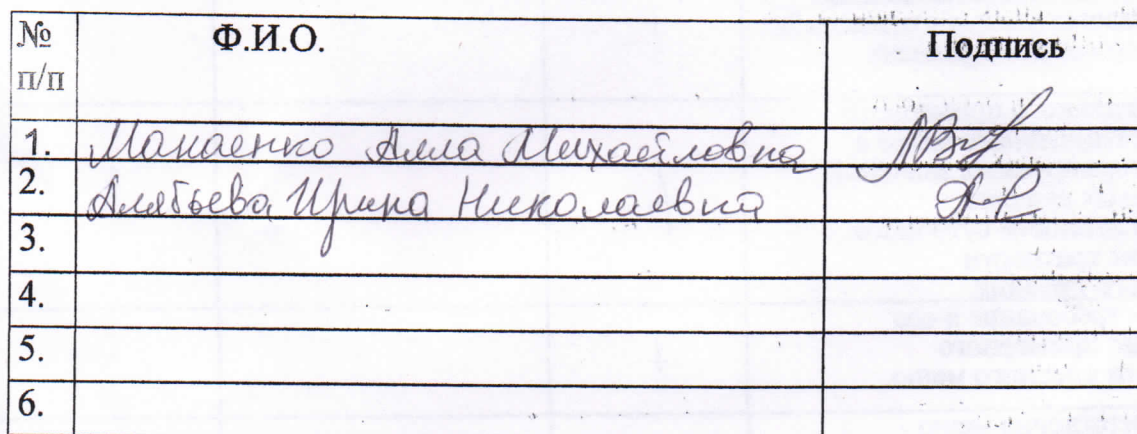 № п/п Ф.И.О. Подпись
1. Манаенко Алла Михайловна
2. Алябьева Ирина Николаевна
3.
4.
5.
6.